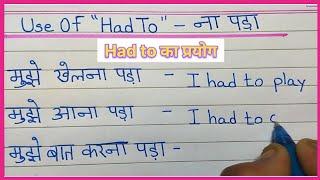 Use Of "Had To" – ना पड़ा
Had to का प्रयोग
मुझे खेलना पड़ा - I had to play
मुझे आना पड़ा - I had to c
मुझे बात करना पड़ा -